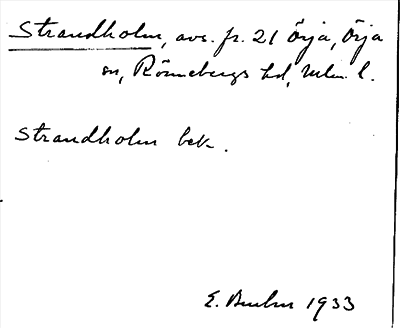 Strandholm, avs. fr. 21 Örja, Örja
sn, Rönnebergs hd, Mlm. l.
Strandholm bek.
E. 1933